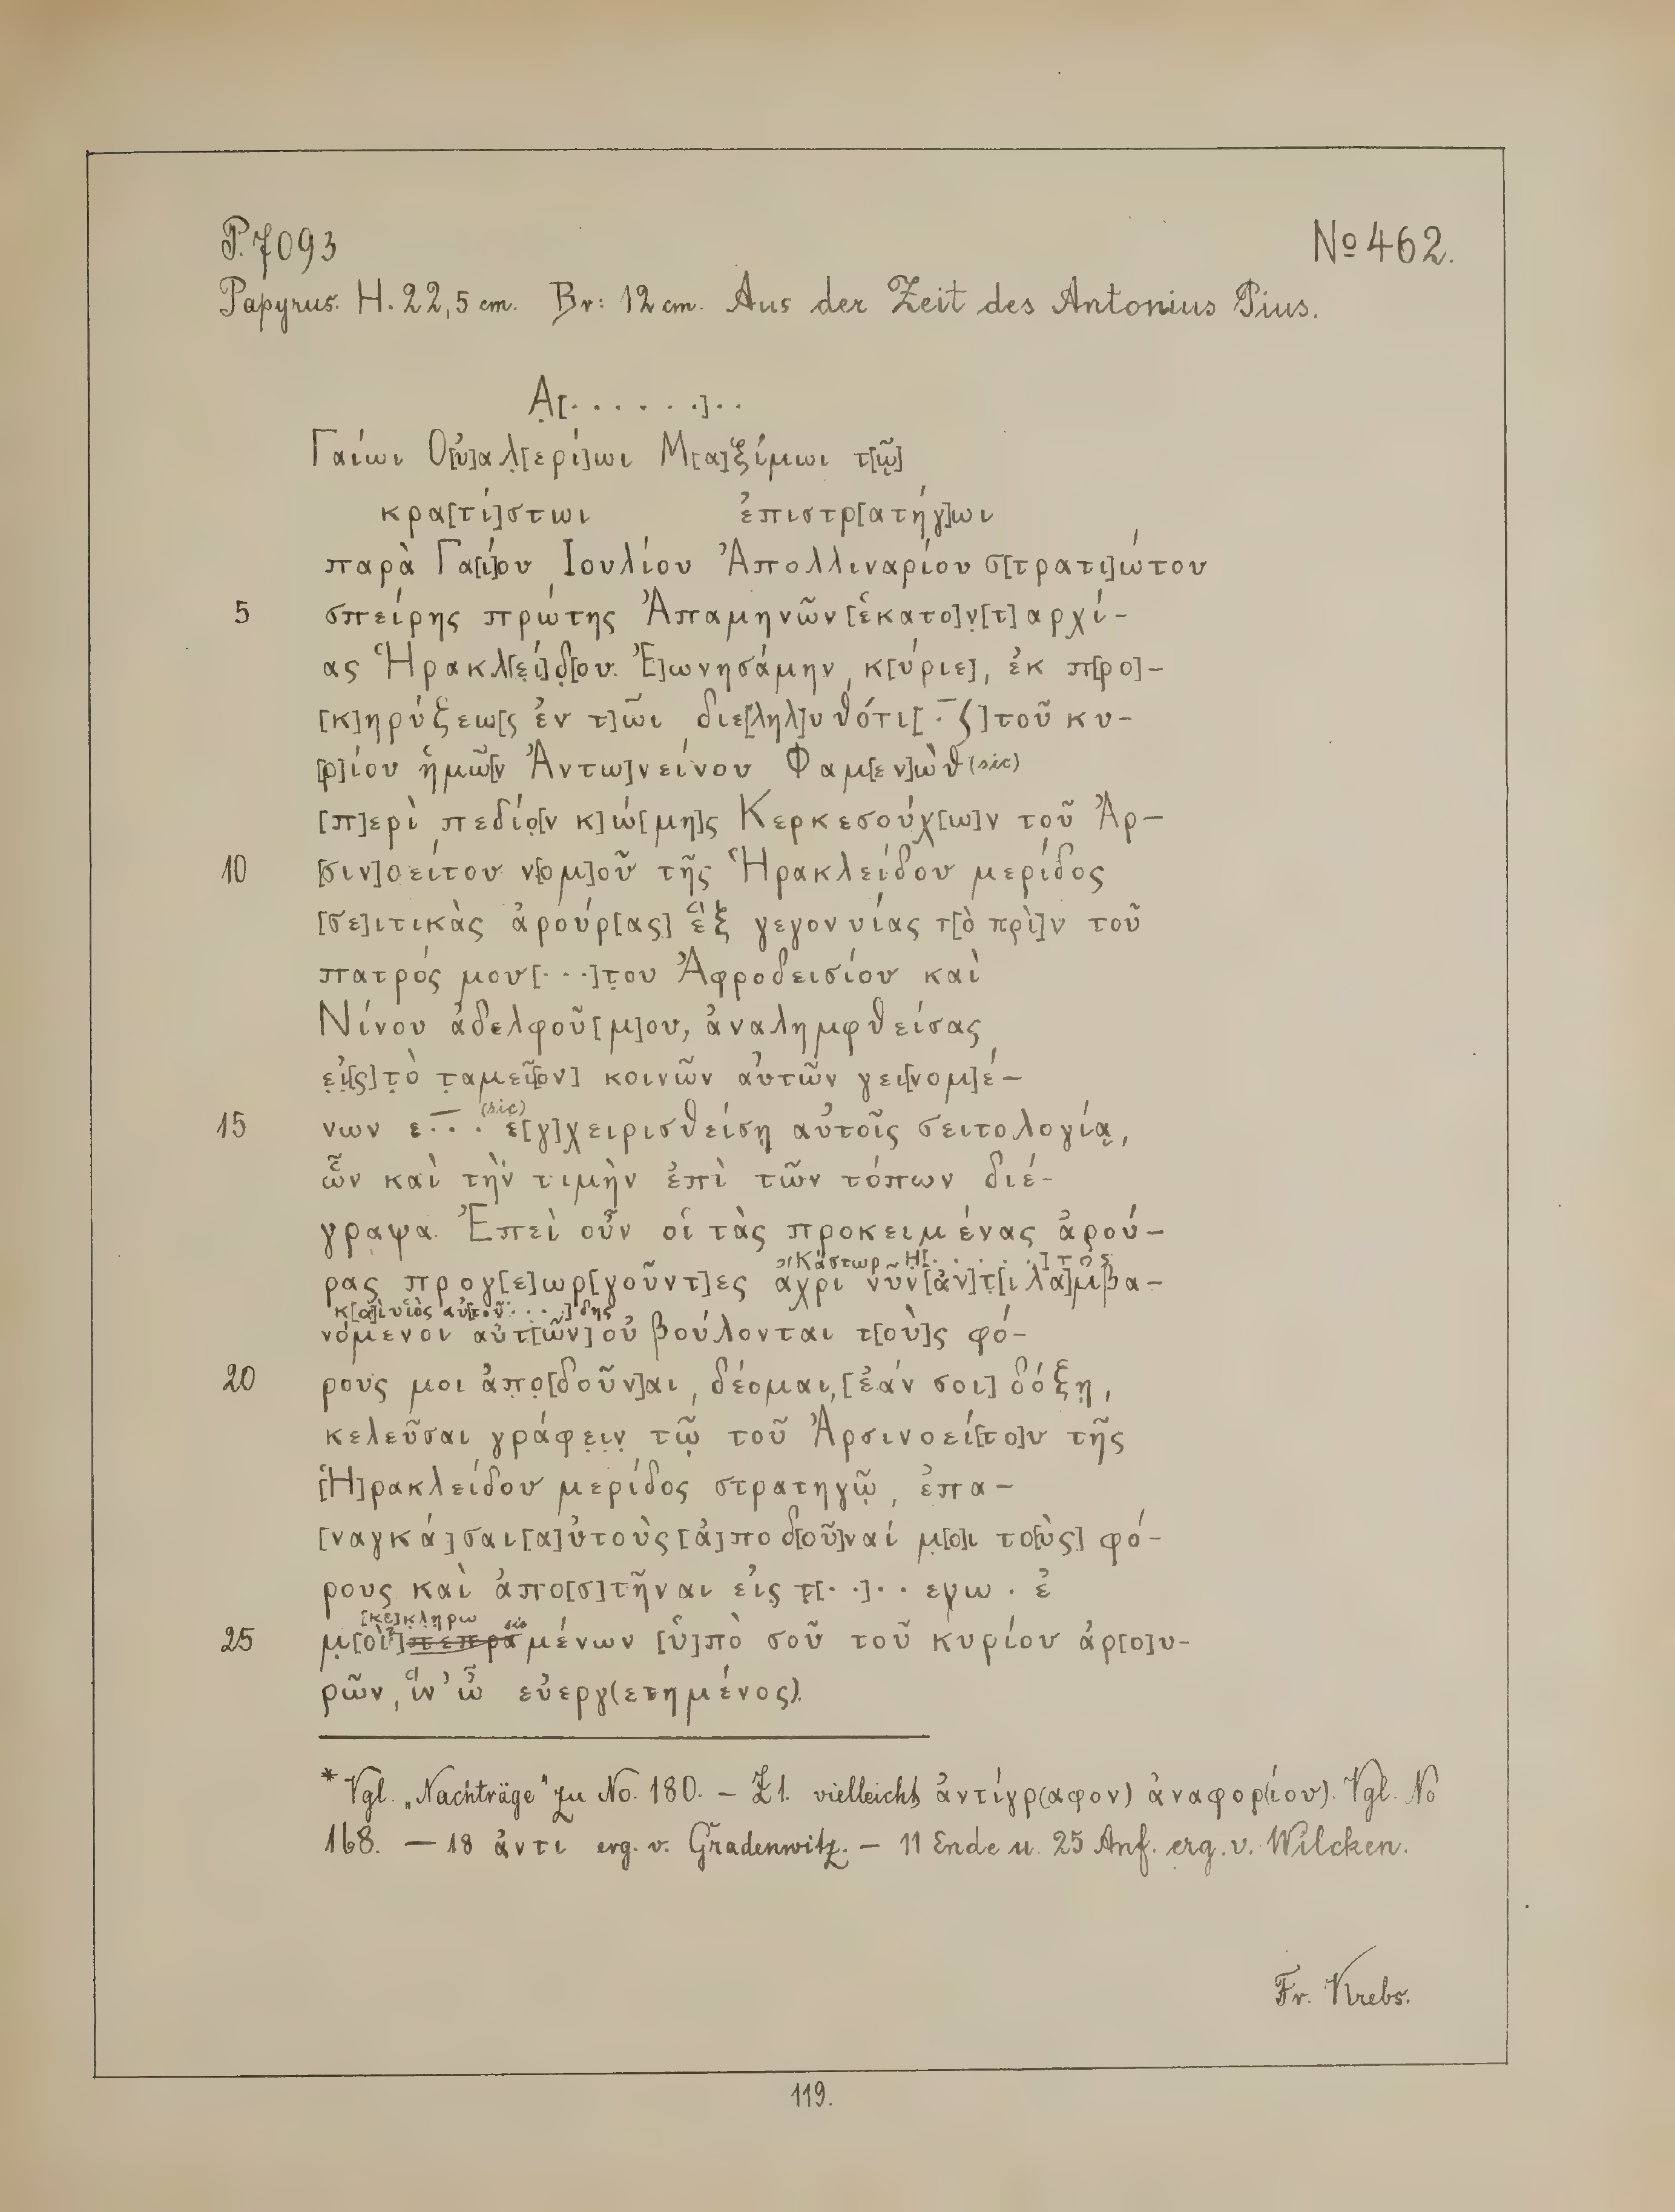 P. 7093
No 462.
Papyrus. H. 22,5 cm. Br: 12 cm. Aus der Zeit des Antonius Pius.
Ạ[· · · · · ·]· ·
Γαίωι Ο[ὐ]αλ̣[ερί]ωι Μ[α]ξίμωι τ[ῷ]
κρα[τί]στωι ἐπιστρ[ατήγ]ωι
παρὰ Γα[ί]ου Ιουλίου Ἀπολλιναρίου σ[τρατι]ώτου
5 σπείρης πρώτης Ἀπαμηνῶν [ἑκατο]ν̣[τ]αρχί-
ας Ἡρακλ[εί]δ̣[ου. Ἐ]ωνησάμην, κ[ύριε], ἐκ π[ρο]-
[κ]ηρύξεω[ς ἐν τ]ῶι διε[ληλ]υθότι [· ζ] τοῦ κυ-
[ρ]ίου ἡμῶ[ν Ἀντω]νείνου Φαμ[εν]ὼθ (sic)
[π]ερὶ πεδίο̣[ν κ]ώ[μη]ς Κερκεσούχ[ω]ν τοῦ Ἀρ-
10 [σιν]οείτου ν[ομ]οῦ τῆς Ἡρακλείδου μερίδος
[σε]ιτικὰς ἀρούρ[ας] ἓξ γεγονυίας τ[ὸ πρὶ]ν τοῦ
πατρός μου [· · ·]τ̣ου Ἀφροδεισίου καὶ
Νίνου ἀδελφοῦ [μ]ου, ἀναλημφθείσας
ε̣ἰ̣[ς] τ̣ὸ τ̣αμεῖ[ον] κοινῶν αὐτῶν γει[νομ]έ-
(sic)
15 νων ε· · · ἐ[γ]χειρισθείσῃ αὐτοῖς σειτολογίᾳ,
ὧν καὶ τὴν τιμὴν ἐπὶ τῶν τόπων διέ-
γραψα. Ἐπεὶ οὖν οἱ τὰς προκειμένας ἀρού-
οἱ Κάστωρ Η̣[· · · · ·]τος
ρας προγ[ε]ωρ[γοῦντ]ες αχρι νῦν [ἀν]τ̣[ιλα]μβα-
κ[α]ὶ υἱὸς αὐ[τοῦ · · ·]δης
νόμενοι αὐτ[ῶν] οὐ βούλονται τ[οὺ]ς φό-
20 ρους μοι ἀπ̣ο̣[δοῦν]αι, δέομαι, [ἐάν σοι] δόξῃ,
κελεῦσαι γράφε̣ι̣ν̣ τῷ τοῦ Ἀρσινοεί[το]υ τῆς
[Ἡ]ρακλείδου μερίδος στρατηγῷ, ἐπα-
[ναγκά]σαι [α]ὐτοὺς [ἀ]ποδ[οῦ]ναί μ[ο]ι το[ὺς] φό-
ρους καὶ ἀπο[σ]τῆναι εἰς τ̣[· ·]· · εγω · ἐ
[κε]κληρω sic
25 μ̣[οὶ?] πεπραμένων [ὑ]πὸ σοῦ τοῦ κυρίου ἀρ[ο]υ-
ρῶν, ἵν' ὦ εὐεργ(ετημένος).
* Vgl. „Nachträge" zu No. 180. – Z 1. vielleicht ἀντίγρ(αφον) ἀναφορ(ίου). Vgl. No
168. – 18 ἀντι erg. v. Gradenwitz. – 11 Ende u. 25 Anf. erg. v. Wilcken.
Fr. Krebs.
119.